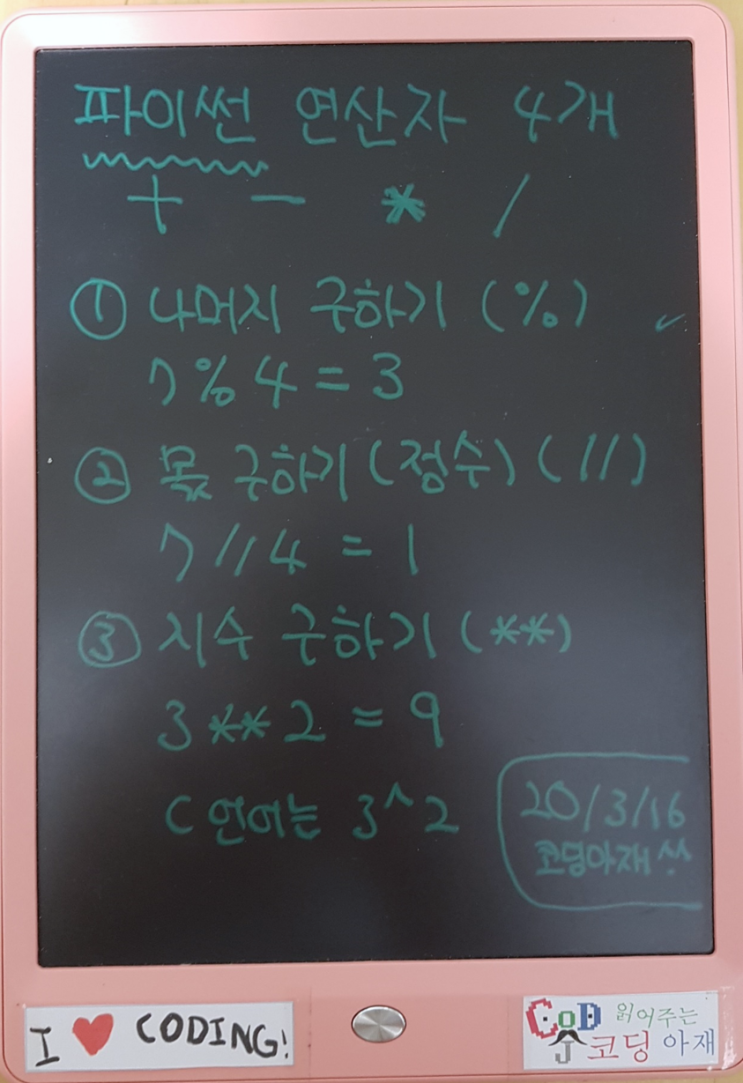 파이썬 연산자 4개
+ - * /
① 나머지 구하기 (%)
7 % 4 = 3
② 몫 구하기 (정수) (//)
7 // 4 = 1
③ 지수 구하기 (**)
3 ** 2 = 9
C 언어는 3^2
20/3/16
코딩아재 ^^
I ♥ CODING!
CoD 읽어주는
코딩 아재